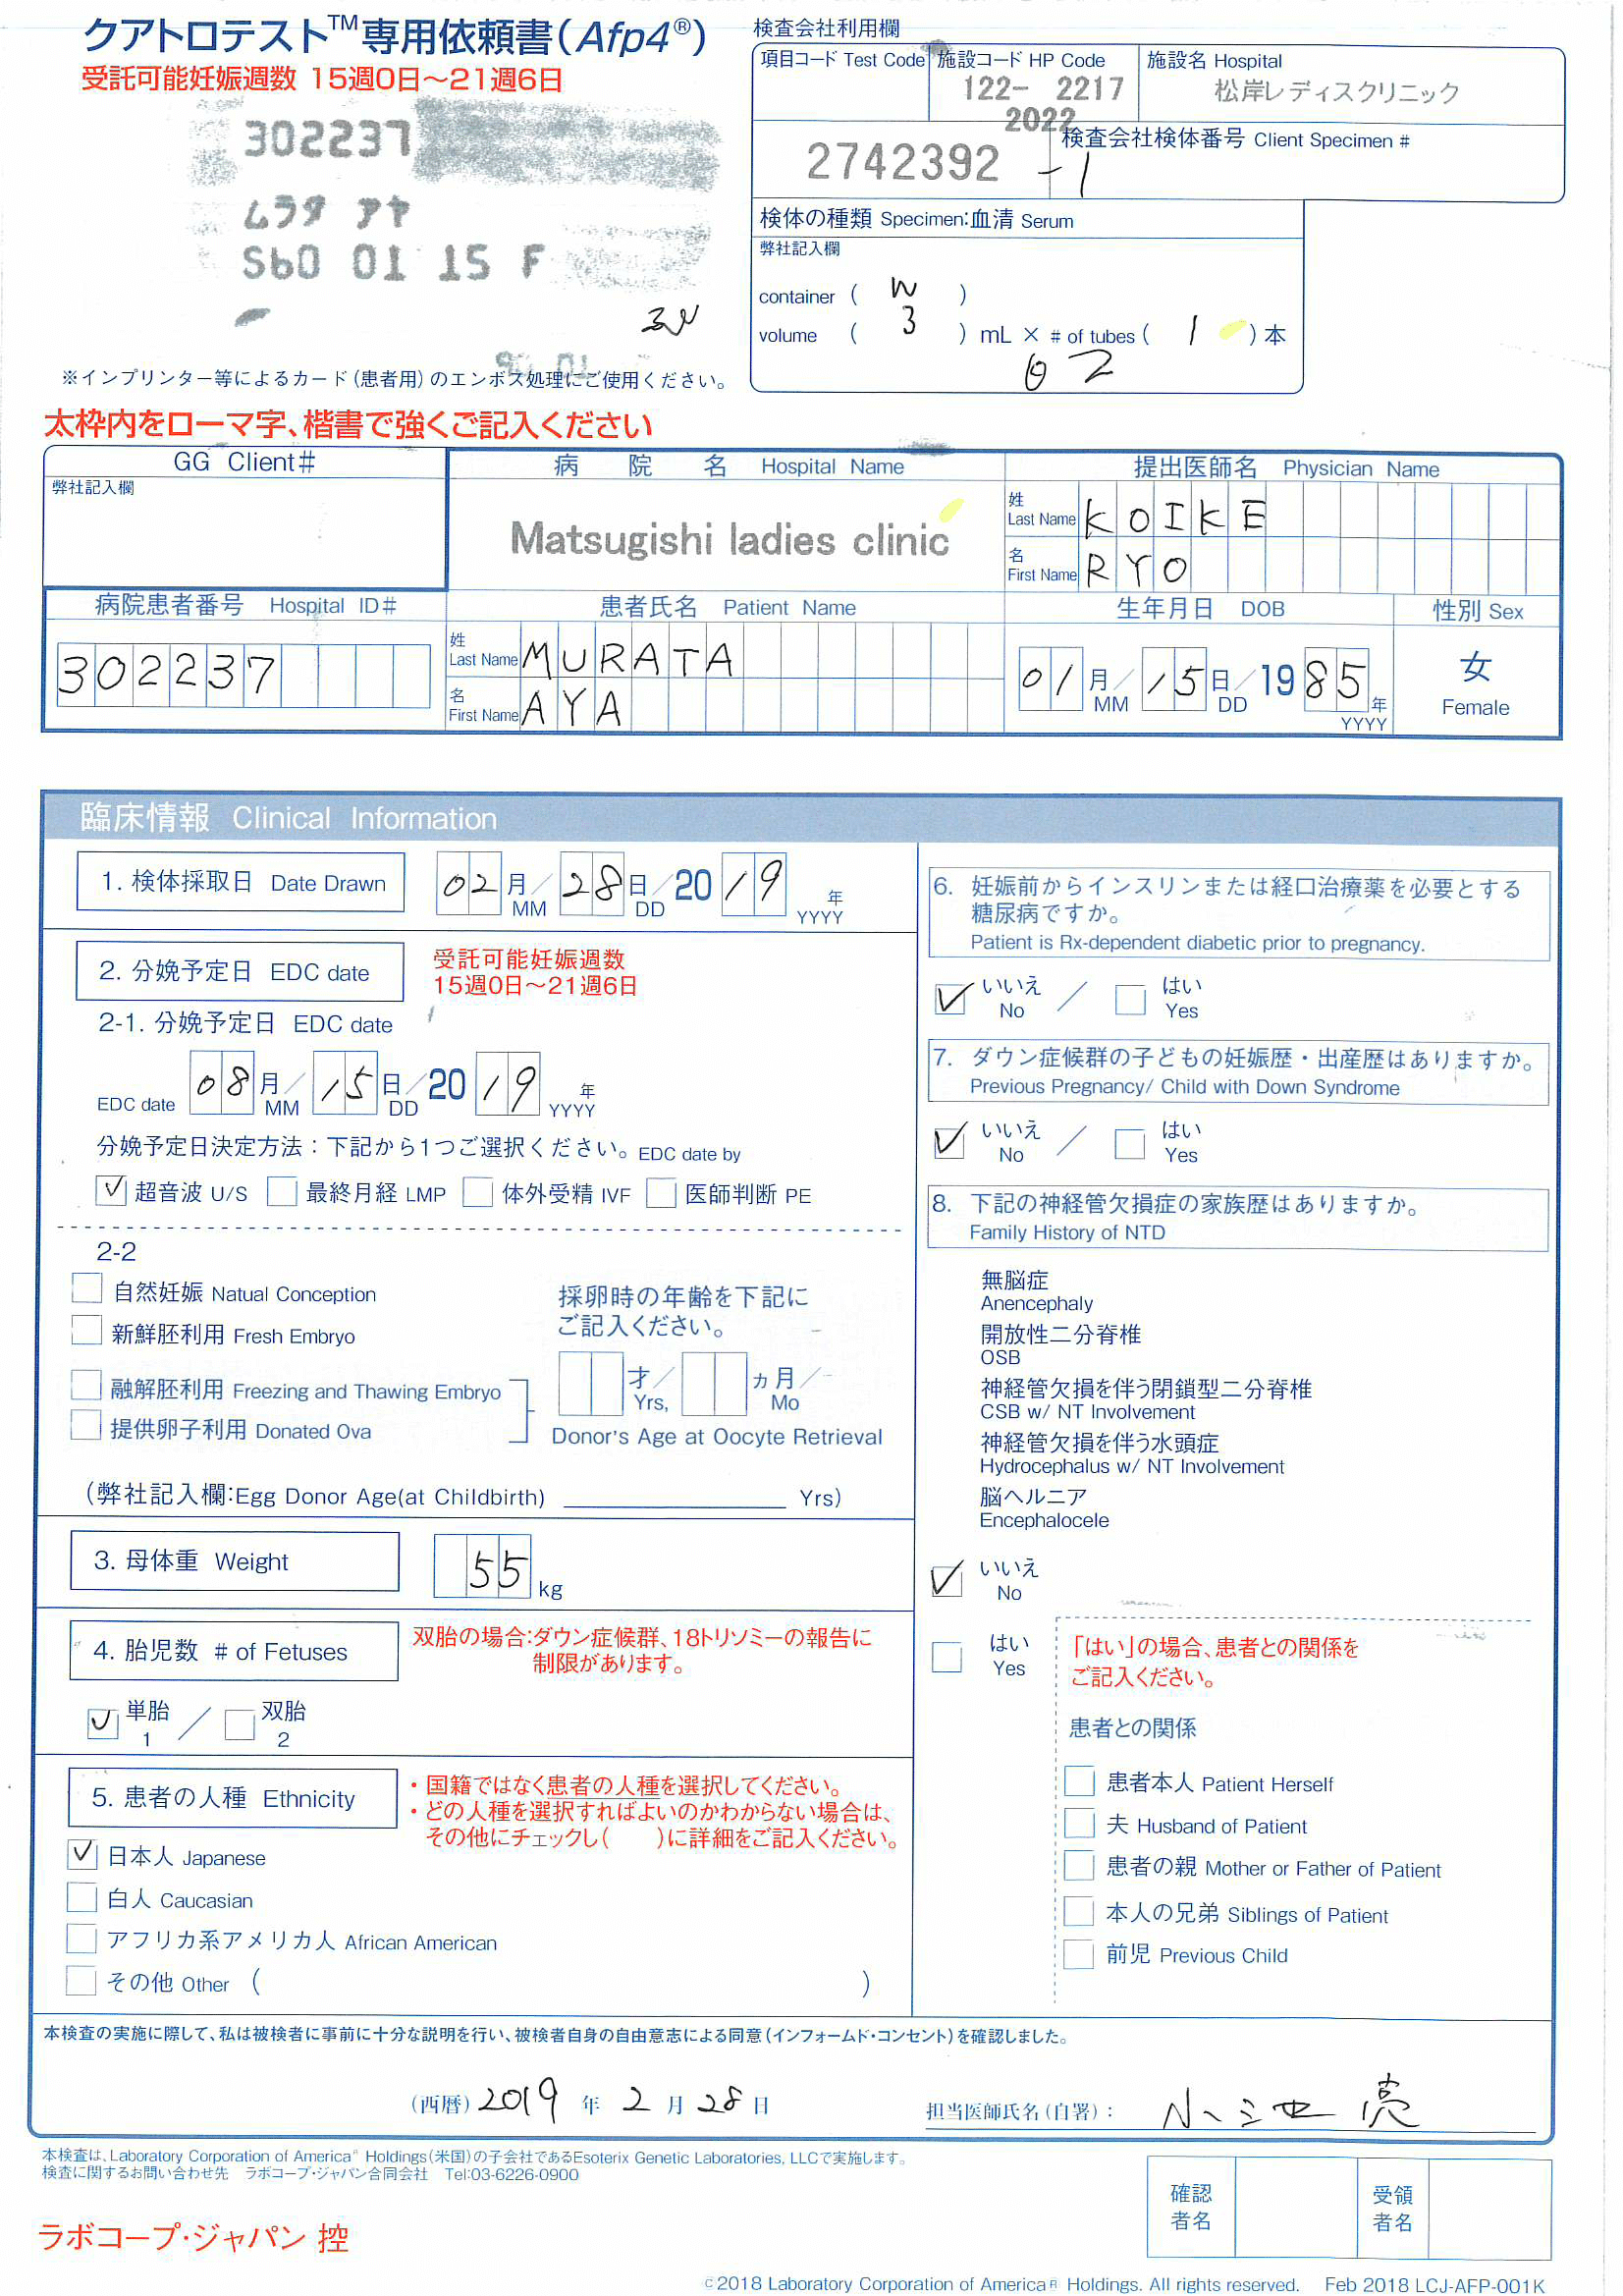 クアトロテスト™専用依頼書(Afp4®)
受託可能妊娠週数 15週0日～21週6日
302237
ムラタ アヤ
S60 01 15 F
※インプリンター等によるカード(患者用)のエンボス処理にご使用ください。
検査会社利用欄
項目コード Test Code
施設コード HP Code
122- 2217
2022
施設名 Hospital
松岸レディスクリニック
検査会社検体番号 Client Specimen #
2742392 -1
検体の種類 Specimen:血清 Serum
弊社記入欄
container ( W )
volume ( 3 ) mL × # of tubes ( 1 ) 本
太枠内をローマ字、楷書で強くご記入ください
GG Client#
弊社記入欄
病院名 Hospital Name
Matsugishi ladies clinic
提出医師名 Physician Name
姓 Last Name KOIKE
名 First Name RYO
病院患者番号 Hospital ID#
302237
患者氏名 Patient Name
姓 Last Name MURATA
名 First Name AYA
生年月日 DOB
01月/15日/1985年
MM DD YYYY
性別 Sex
女
Female
臨床情報 Clinical Information
1. 検体採取日 Date Drawn
02月/28日/2019年
MM DD YYYY
2. 分娩予定日 EDC date
受託可能妊娠週数
15週0日～21週6日
2-1. 分娩予定日 EDC date
EDC date 08月/15日/2019年
MM DD YYYY
分娩予定日決定方法：下記から1つご選択ください。EDC date by
✓ 超音波 U/S 最終月経 LMP 体外受精 IVF 医師判断 PE
2-2
自然妊娠 Natual Conception
新鮮胚利用 Fresh Embryo
融解胚利用 Freezing and Thawing Embryo
提供卵子利用 Donated Ova
採卵時の年齢を下記に
ご記入ください。
才/ カ月/
Yrs, Mo
Donor's Age at Oocyte Retrieval
(弊社記入欄:Egg Donor Age(at Childbirth) Yrs)
3. 母体重 Weight
55 kg
4. 胎児数 # of Fetuses
双胎の場合:ダウン症候群、18トリソミーの報告に
制限があります。
✓ 単胎 1 / 双胎 2
5. 患者の人種 Ethnicity
・国籍ではなく患者の人種を選択してください。
・どの人種を選択すればよいのかわからない場合は、
その他にチェックし( )に詳細をご記入ください。
✓ 日本人 Japanese
白人 Caucasian
アフリカ系アメリカ人 African American
その他 Other ( )
6. 妊娠前からインスリンまたは経口治療薬を必要とする
糖尿病ですか。
Patient is Rx-dependent diabetic prior to pregnancy.
✓ いいえ No / はい Yes
7. ダウン症候群の子どもの妊娠歴・出産歴はありますか。
Previous Pregnancy/ Child with Down Syndrome
✓ いいえ No / はい Yes
8. 下記の神経管欠損症の家族歴はありますか。
Family History of NTD
無脳症
Anencephaly
開放性二分脊椎
OSB
神経管欠損を伴う閉鎖型二分脊椎
CSB w/ NT Involvement
神経管欠損を伴う水頭症
Hydrocephalus w/ NT Involvement
脳ヘルニア
Encephalocele
✓ いいえ
No
はい
Yes
「はい」の場合、患者との関係を
ご記入ください。
患者との関係
患者本人 Patient Herself
夫 Husband of Patient
患者の親 Mother or Father of Patient
本人の兄弟 Siblings of Patient
前児 Previous Child
本検査の実施に際して、私は被検者に事前に十分な説明を行い、被検者自身の自由意志による同意(インフォームド・コンセント)を確認しました。
(西暦) 2019 年 2 月 28 日
担当医師氏名(自署)： 小池 亮
本検査は、Laboratory Corporation of America® Holdings(米国)の子会社であるEsoterix Genetic Laboratories, LLCで実施します。
検査に関するお問い合わせ先 ラボコープ・ジャパン合同会社 Tel:03-6226-0900
確認者名
受領者名
ラボコープ・ジャパン 控
©2018 Laboratory Corporation of America® Holdings. All rights reserved. Feb 2018 LCJ-AFP-001K